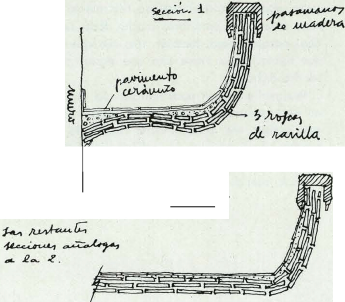 sección 1
pasamanos
de madera
pavimento
cerámico
muro
3 roscas
de rasilla
Las restantes
secciones análogas
a la 2.